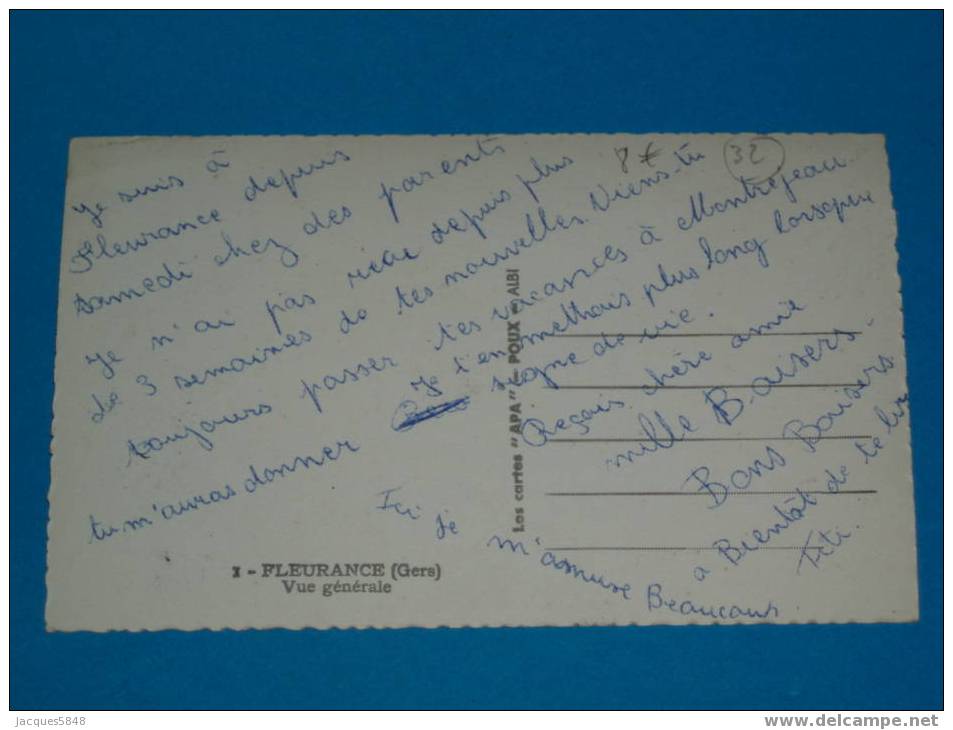 8 €
32
Je suis à
Fleurance depuis
samedi chez des parents
Je n'ai pas recu depuis plus
de 3 semaines de tes nouvelles. Viens-tu
toujours passer tes vacances à Montrejeau.
Je t'en methais plus long lorsque
tu m'auras donner signe de vie.
Reçois chère amie
mille Baisers.
Bons Baisers
Ici je m'amuse Beaucaus
a Bientôt de te lire
Titi.
Les cartes "APA" - POUX - ALBI
1 - FLEURANCE (Gers)
Vue générale
Jacques5848
www.delcampe.net